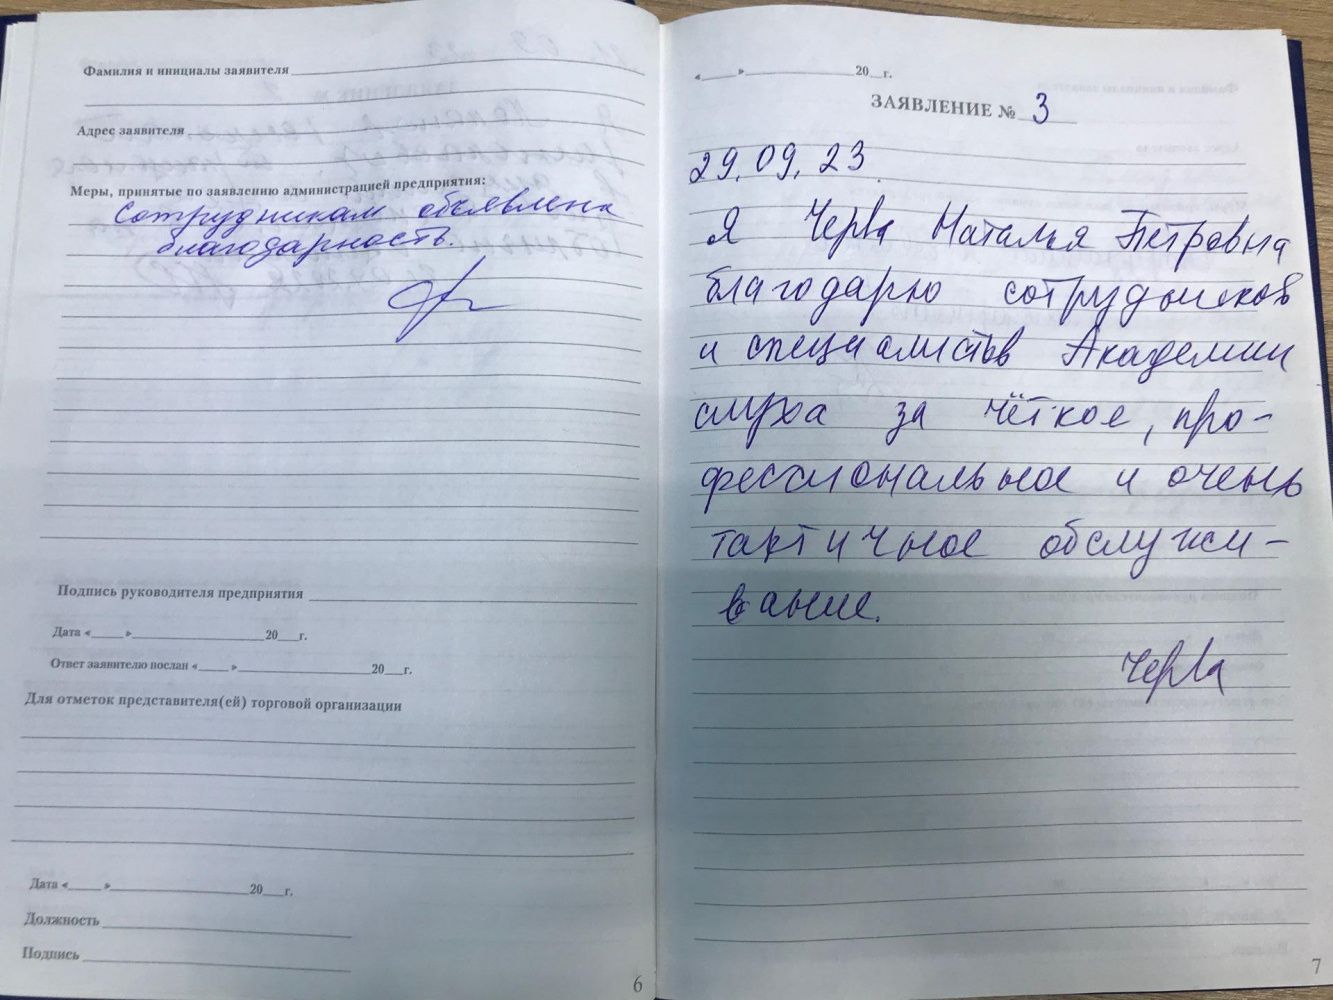 Фамилия и инициалы заявителя
Адрес заявителя
Меры, принятые по заявлению администрацией предприятия:
Сотрудникам объявлена
благодарность.
Подпись руководителя предприятия
Дата «____» ____________ 20__г.
Ответ заявителю послан «____» ____________ 20__г.
Для отметок представителя(ей) торговой организации
Дата «____» ____________ 20__г.
Должность
Подпись
6
«____» ____________ 20__г.
ЗАЯВЛЕНИЕ № 3
29.09.23.
Я Черва Наталья Петровна
благодарю сотрудников
и специалистов Академии
слуха за чёткое, про-
фессиональное и очень
тактичное обслужи-
вание.
Черва
7